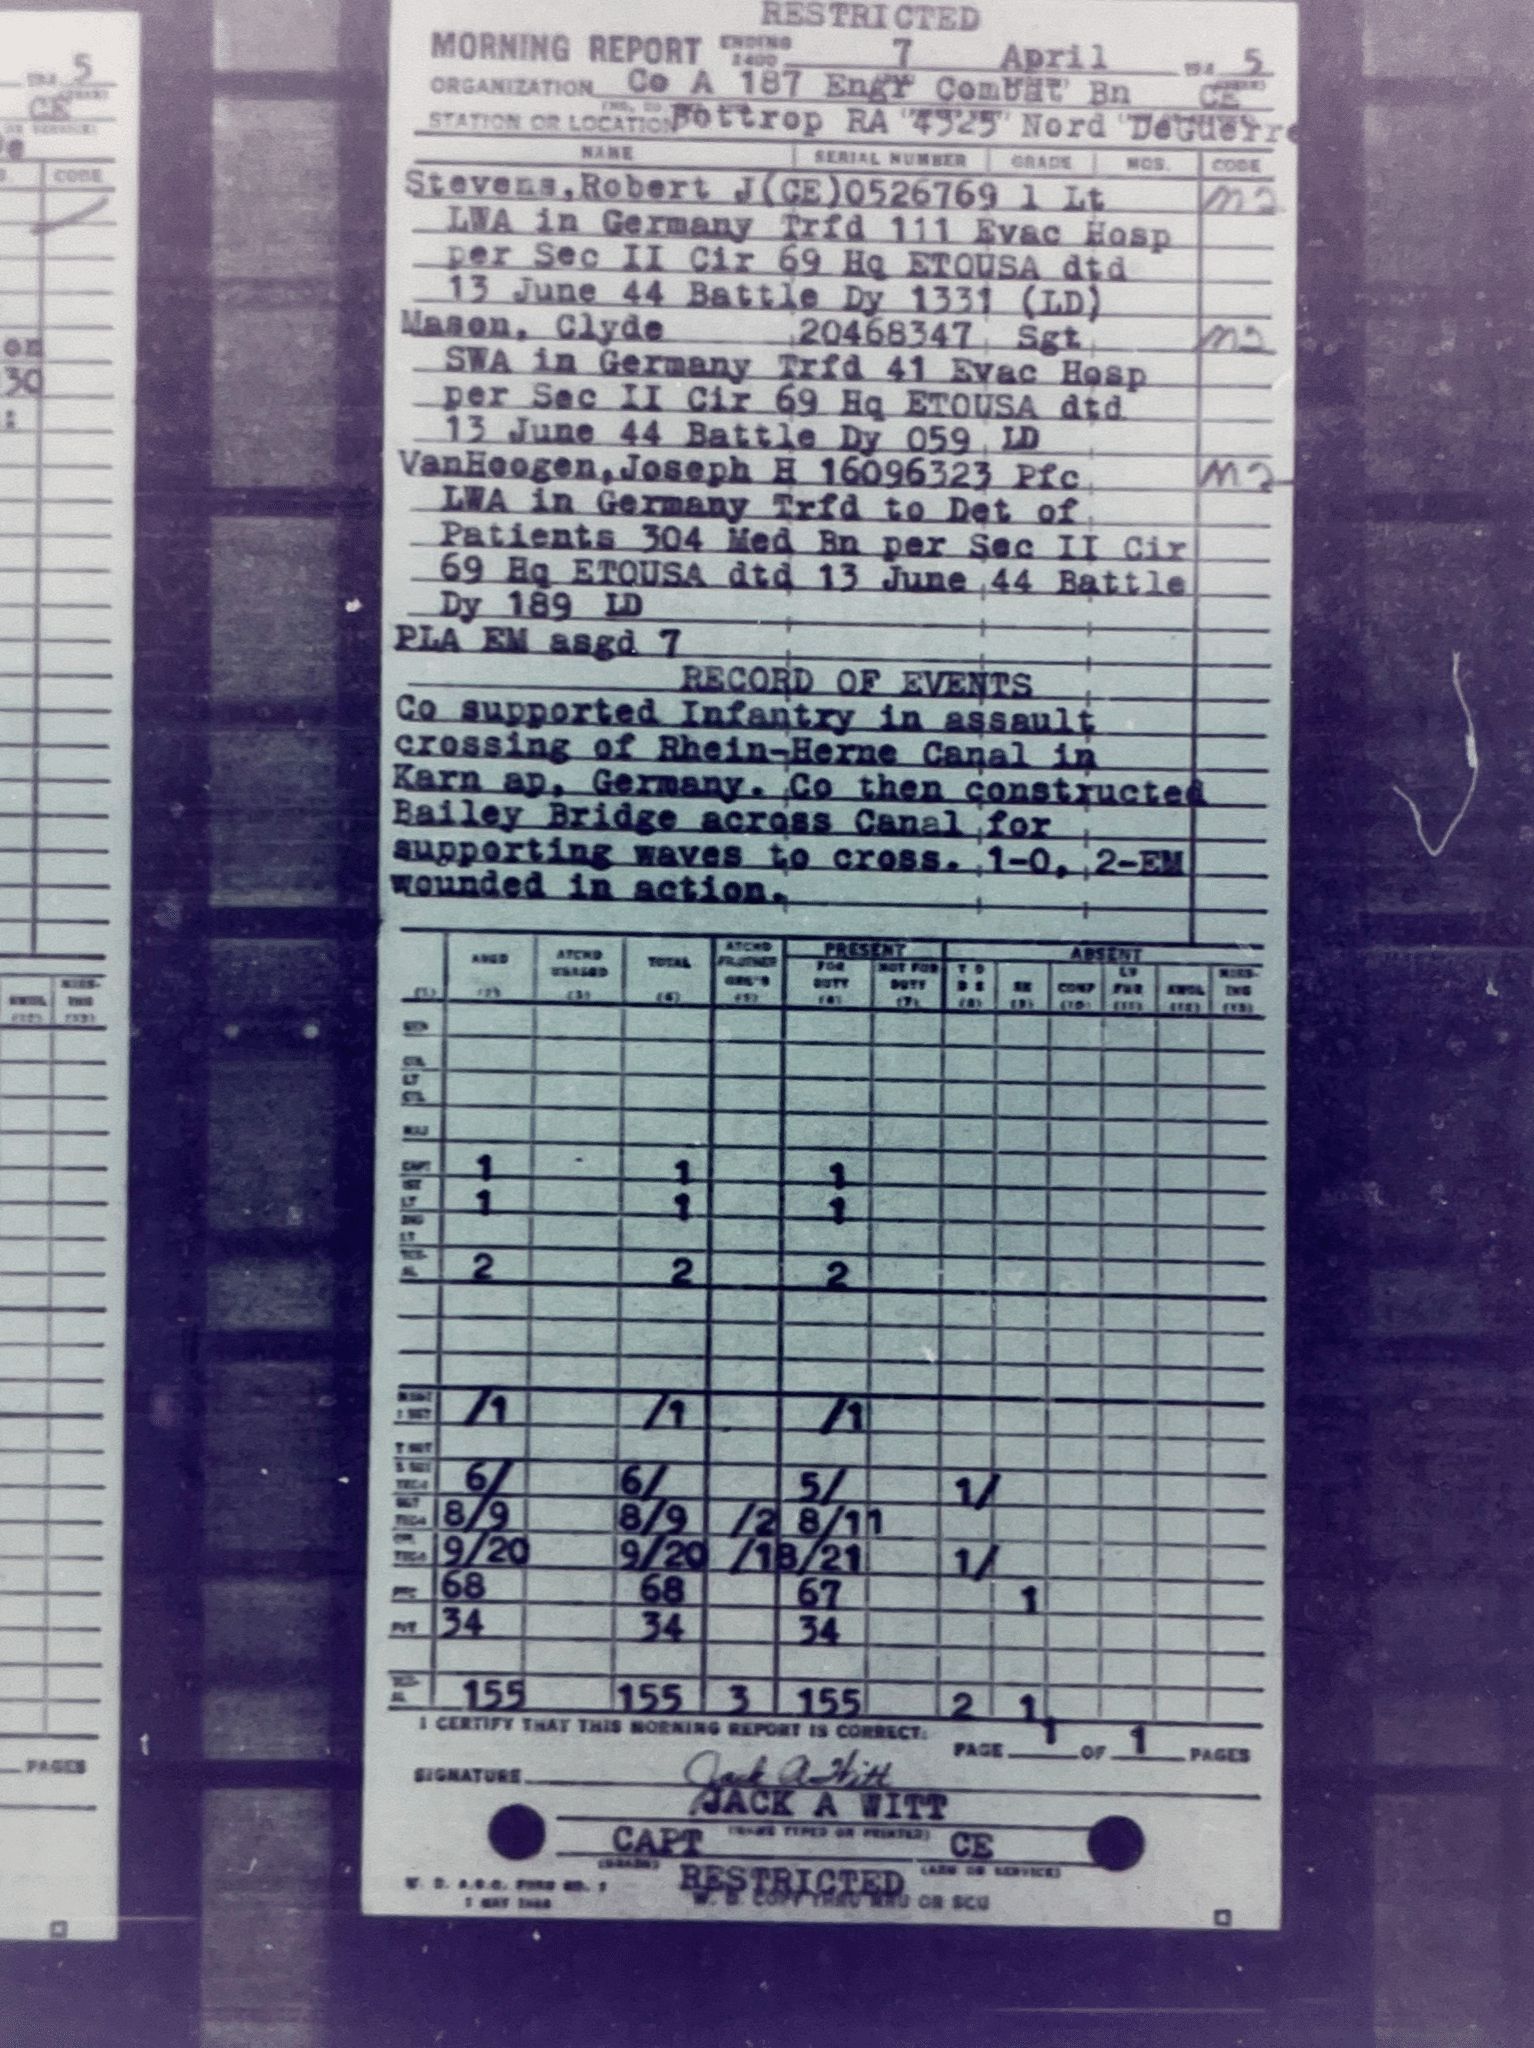 5
CE
CODE
on
30
:
PAGES
RESTRICTED
MORNING REPORT ENDING 2400 7 April 194 5
ORGANIZATION Co A 187 Engr Combat Bn CE
STATION OR LOCATION Bottrop RA "4525" Nord DeGuerre
NAME SERIAL NUMBER GRADE MOS. CODE
Stevens,Robert J(CE)0526769 1 Lt M2
LWA in Germany Trfd 111 Evac Hosp
per Sec II Cir 69 Hq ETOUSA dtd
13 June 44 Battle Dy 1331 (LD)
Mason, Clyde 20468347 Sgt M2
SWA in Germany Trfd 41 Evac Hosp
per Sec II Cir 69 Hq ETOUSA dtd
13 June 44 Battle Dy 059 LD
VanHoogen,Joseph H 16096323 Pfc M2
LWA in Germany Trfd to Det of
Patients 304 Med Bn per Sec II Cir
69 Hq ETOUSA dtd 13 June 44 Battle
Dy 189 LD
PLA EM asgd 7
RECORD OF EVENTS
Co supported Infantry in assault
crossing of Rhein-Herne Canal in
Karn ap, Germany. Co then constructed
Bailey Bridge across Canal for
supporting waves to cross. 1-O, 2-EM
wounded in action.
PRESENT ABSENT
ASGD ATCHD UNASGD TOTAL ATCHD FR OTHER ORG'S FOR DUTY NOT FOR DUTY T D D S SK CONF LV FUR AWOL MISS-ING
(1) (2) (3) (4) (5) (6) (7) (8) (9) (10) (11) (12) (13)
COL
LT COL
MAJ
CAPT 1 1 1
1ST LT 1 1 1
2ND LT
TOT-AL 2 2 2
M SGT 1 SGT /1 /1 /1
T SGT
S SGT TEC-3 6/ 6/ 5/ 1/
SGT TEC-4 8/9 8/9 /2 8/11
CPL TEC-5 9/20 9/20 /1 8/21 1/
PFC 68 68 67 1
PVT 34 34 34
TOT-AL 155 155 3 155 2 1
I CERTIFY THAT THIS MORNING REPORT IS CORRECT:
PAGE 1 OF 1 PAGES
SIGNATURE Jack A Witt
JACK A WITT
(NAME TYPED OR PRINTED)
CAPT CE
(GRADE) (ARM OR SERVICE)
RESTRICTED
W. D. A.G.O. FORM NO. 1
1 MAY 1944
W. D. COPY THRU MRU OR SCU